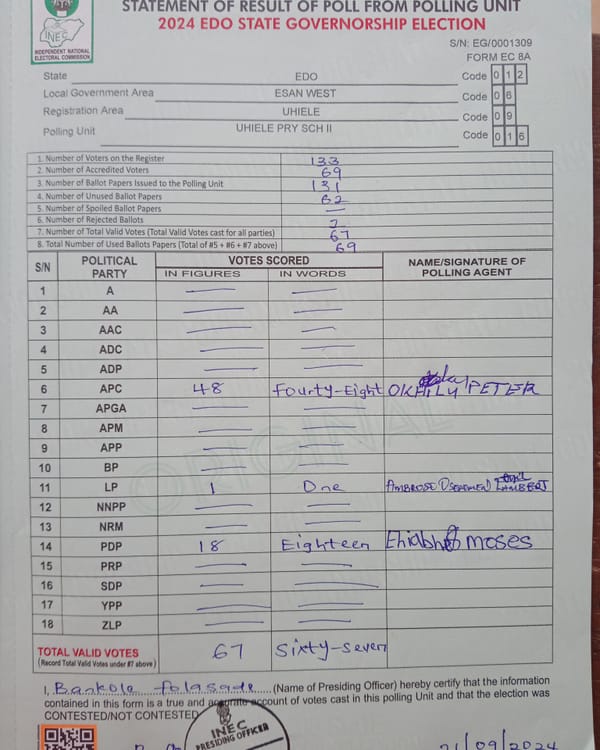 STATEMENT OF RESULT OF POLL FROM POLLING UNIT
2024 EDO STATE GOVERNORSHIP ELECTION
INEC
INDEPENDENT NATIONAL
ELECTORAL COMMISSION
S/N: EG/0001309
FORM EC 8A
State EDO Code 0 1 2
Local Government Area ESAN WEST Code 0 6
Registration Area UHIELE Code 0 9
Polling Unit UHIELE PRY SCH II Code 0 1 6
1. Number of Voters on the Register 133
2. Number of Accredited Voters 69
3. Number of Ballot Papers Issued to the Polling Unit 131
4. Number of Unused Ballot Papers 62
5. Number of Spoiled Ballot Papers —
6. Number of Rejected Ballots 2
7. Number of Total Valid Votes (Total Valid Votes cast for all parties) 67
8. Total Number of Used Ballots Papers (Total of #5 + #6 + #7 above) 69
S/N POLITICAL PARTY VOTES SCORED NAME/SIGNATURE OF POLLING AGENT
IN FIGURES IN WORDS
1 A — —
2 AA — —
3 AAC — —
4 ADC — —
5 ADP — —
6 APC 48 Fourty-Eight PETER
7 APGA — —
8 APM — —
9 APP — —
10 BP — —
11 LP 1 One AMBROSE LAMBERT
12 NNPP — —
13 NRM — —
14 PDP 18 Eighteen moses
15 PRP — —
16 SDP — —
17 YPP — —
18 ZLP — —
TOTAL VALID VOTES 67 Sixty-Seven
(Record Total Valid Votes under #7 above)
ORIGINAL
I, Bankole Folasade (Name of Presiding Officer) hereby certify that the information
contained in this form is a true and accurate account of votes cast in this polling Unit and that the election was
CONTESTED/NOT CONTESTED
INEC
PRESIDING OFFICER
21/09/2024